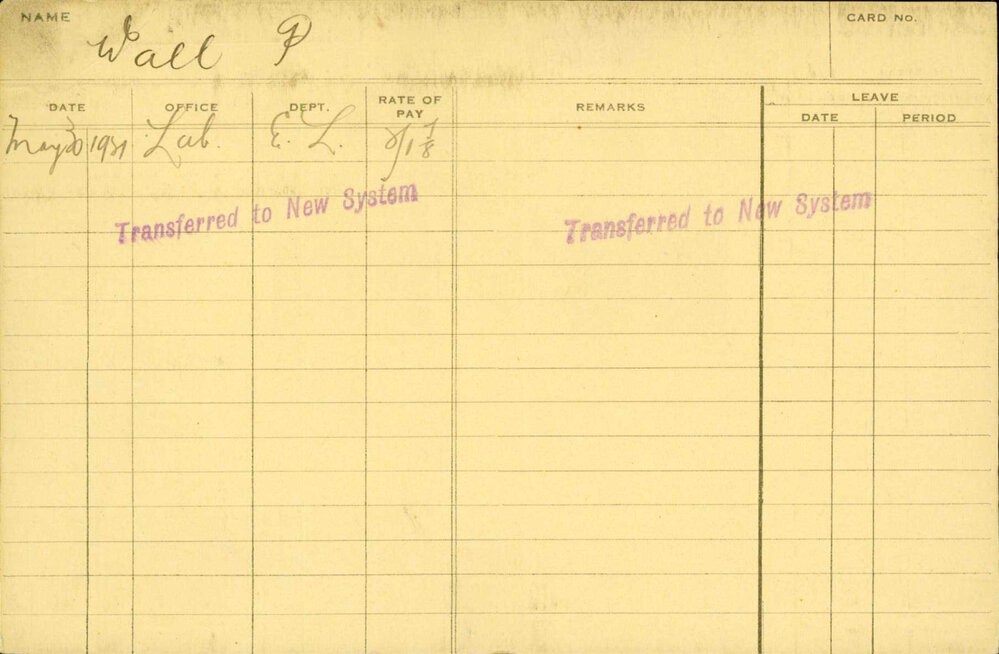 NAME
Wall P
CARD No.
DATE OFFICE DEPT. RATE OF PAY REMARKS LEAVE
DATE PERIOD
May 30 Lab. E. L. 2/1 7/8
Transferred to New System Transferred to New System